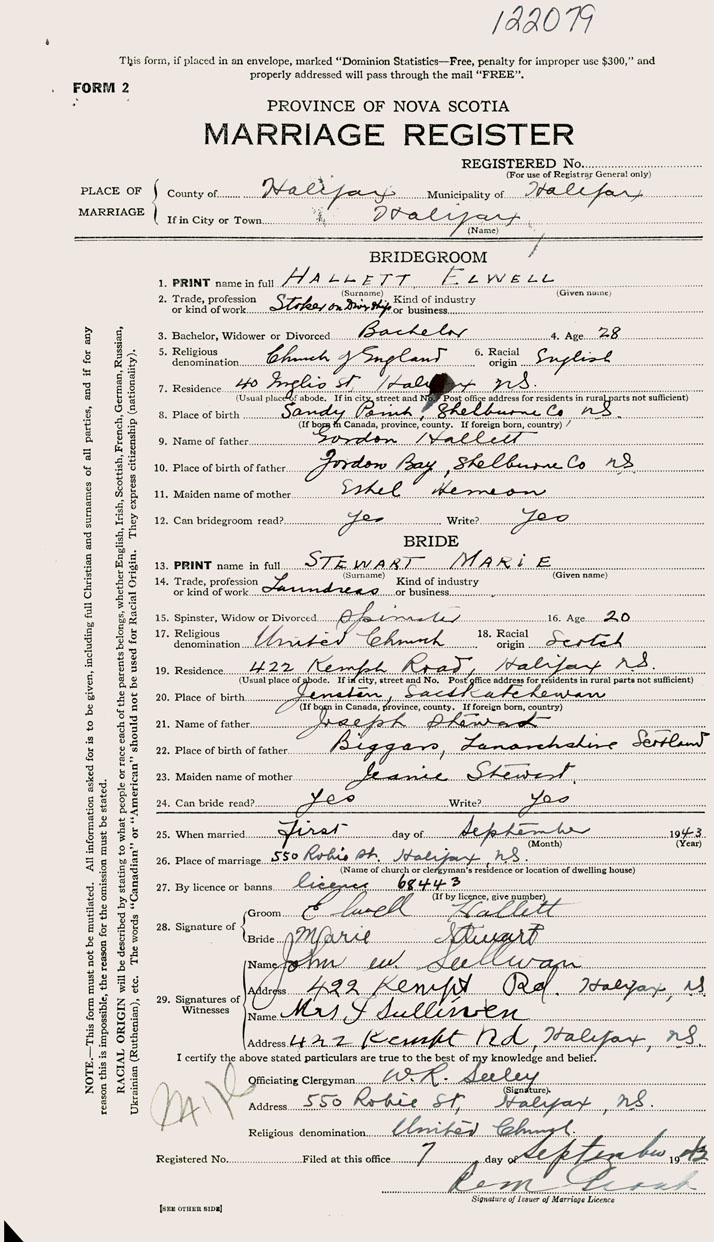 122079
This form, if placed in an envelope, marked "Dominion Statistics—Free, penalty for improper use $300," and
properly addressed will pass through the mail "FREE".
FORM 2
PROVINCE OF NOVA SCOTIA
MARRIAGE REGISTER
REGISTERED No.
(For use of Registrar General only)
PLACE OF MARRIAGE
County of Halifax Municipality of Halifax
If in City or Town Halifax
(Name)
BRIDEGROOM
1. PRINT name in full HALLETT ELWELL
(Surname) (Given name)
2. Trade, profession or kind of work Stoker on Kind of industry or business
3. Bachelor, Widower or Divorced Bachelor 4. Age 28
5. Religious denomination Church of England 6. Racial origin English
7. Residence 40 Inglis st. Halifax NS.
(Usual place of abode. If in city, street and No. Post office address for residents in rural parts not sufficient)
8. Place of birth Sandy Point, Shelburne Co NS
(If born in Canada, province, county. If foreign born, country)
9. Name of father Gordon Hallett
10. Place of birth of father Jordon Bay, Shelburne Co NS
11. Maiden name of mother Hemeon
12. Can bridegroom read? yes Write? yes
BRIDE
13. PRINT name in full STEWART MARIE
(Surname) (Given name)
14. Trade, profession or kind of work Laundress Kind of industry or business
15. Spinster, Widow or Divorced Spinster 16. Age 20
17. Religious denomination United Church 18. Racial origin Scotch
19. Residence 422 Kempt Road, Halifax NS.
(Usual place of abode. If in city, street and No. Post office address for residents in rural parts not sufficient)
20. Place of birth Saskatchewan
(If born in Canada, province, county. If foreign born, country)
21. Name of father Joseph Stewart
22. Place of birth of father Biggars, Lanarkshire Scotland
23. Maiden name of mother Jeanie Stewart.
24. Can bride read? yes Write? yes
25. When married First day of September 1943
(Month) (Year)
26. Place of marriage 550 Robie St. Halifax, NS.
(Name of church or clergyman's residence or location of dwelling house)
27. By licence or banns licence 68443
(If by licence, give number)
28. Signature of Groom Elwell Hallett
Bride Marie Stewart
29. Signatures of Witnesses
Name John W. Sullivan
Address 422 Kempt Rd. Halifax, NS
Name Mrs J Sulliven
Address 422 Kempt Rd, Halifax, NS.
I certify the above stated particulars are true to the best of my knowledge and belief.
Officiating Clergyman W. R. Seeley
(Signature).
Address 550 Robie St, Halifax, NS.
Religious denomination United Church
Registered No. Filed at this office 7 day of September 1943
Signature of Issuer of Marriage Licence
[SEE OTHER SIDE]
NOTE.—This form must not be mutilated. All information asked for is to be given, including full Christian and surnames of all parties, and if for any
reason this is impossible, the reason for the omission must be stated.
RACIAL ORIGIN will be described by stating to what people or race each of the parents belongs, whether English, Irish, Scottish, French, German, Russian,
Ukrainian (Ruthenian), etc. The words "Canadian" or "American" should not be used for Racial Origin. They express citizenship (nationality).